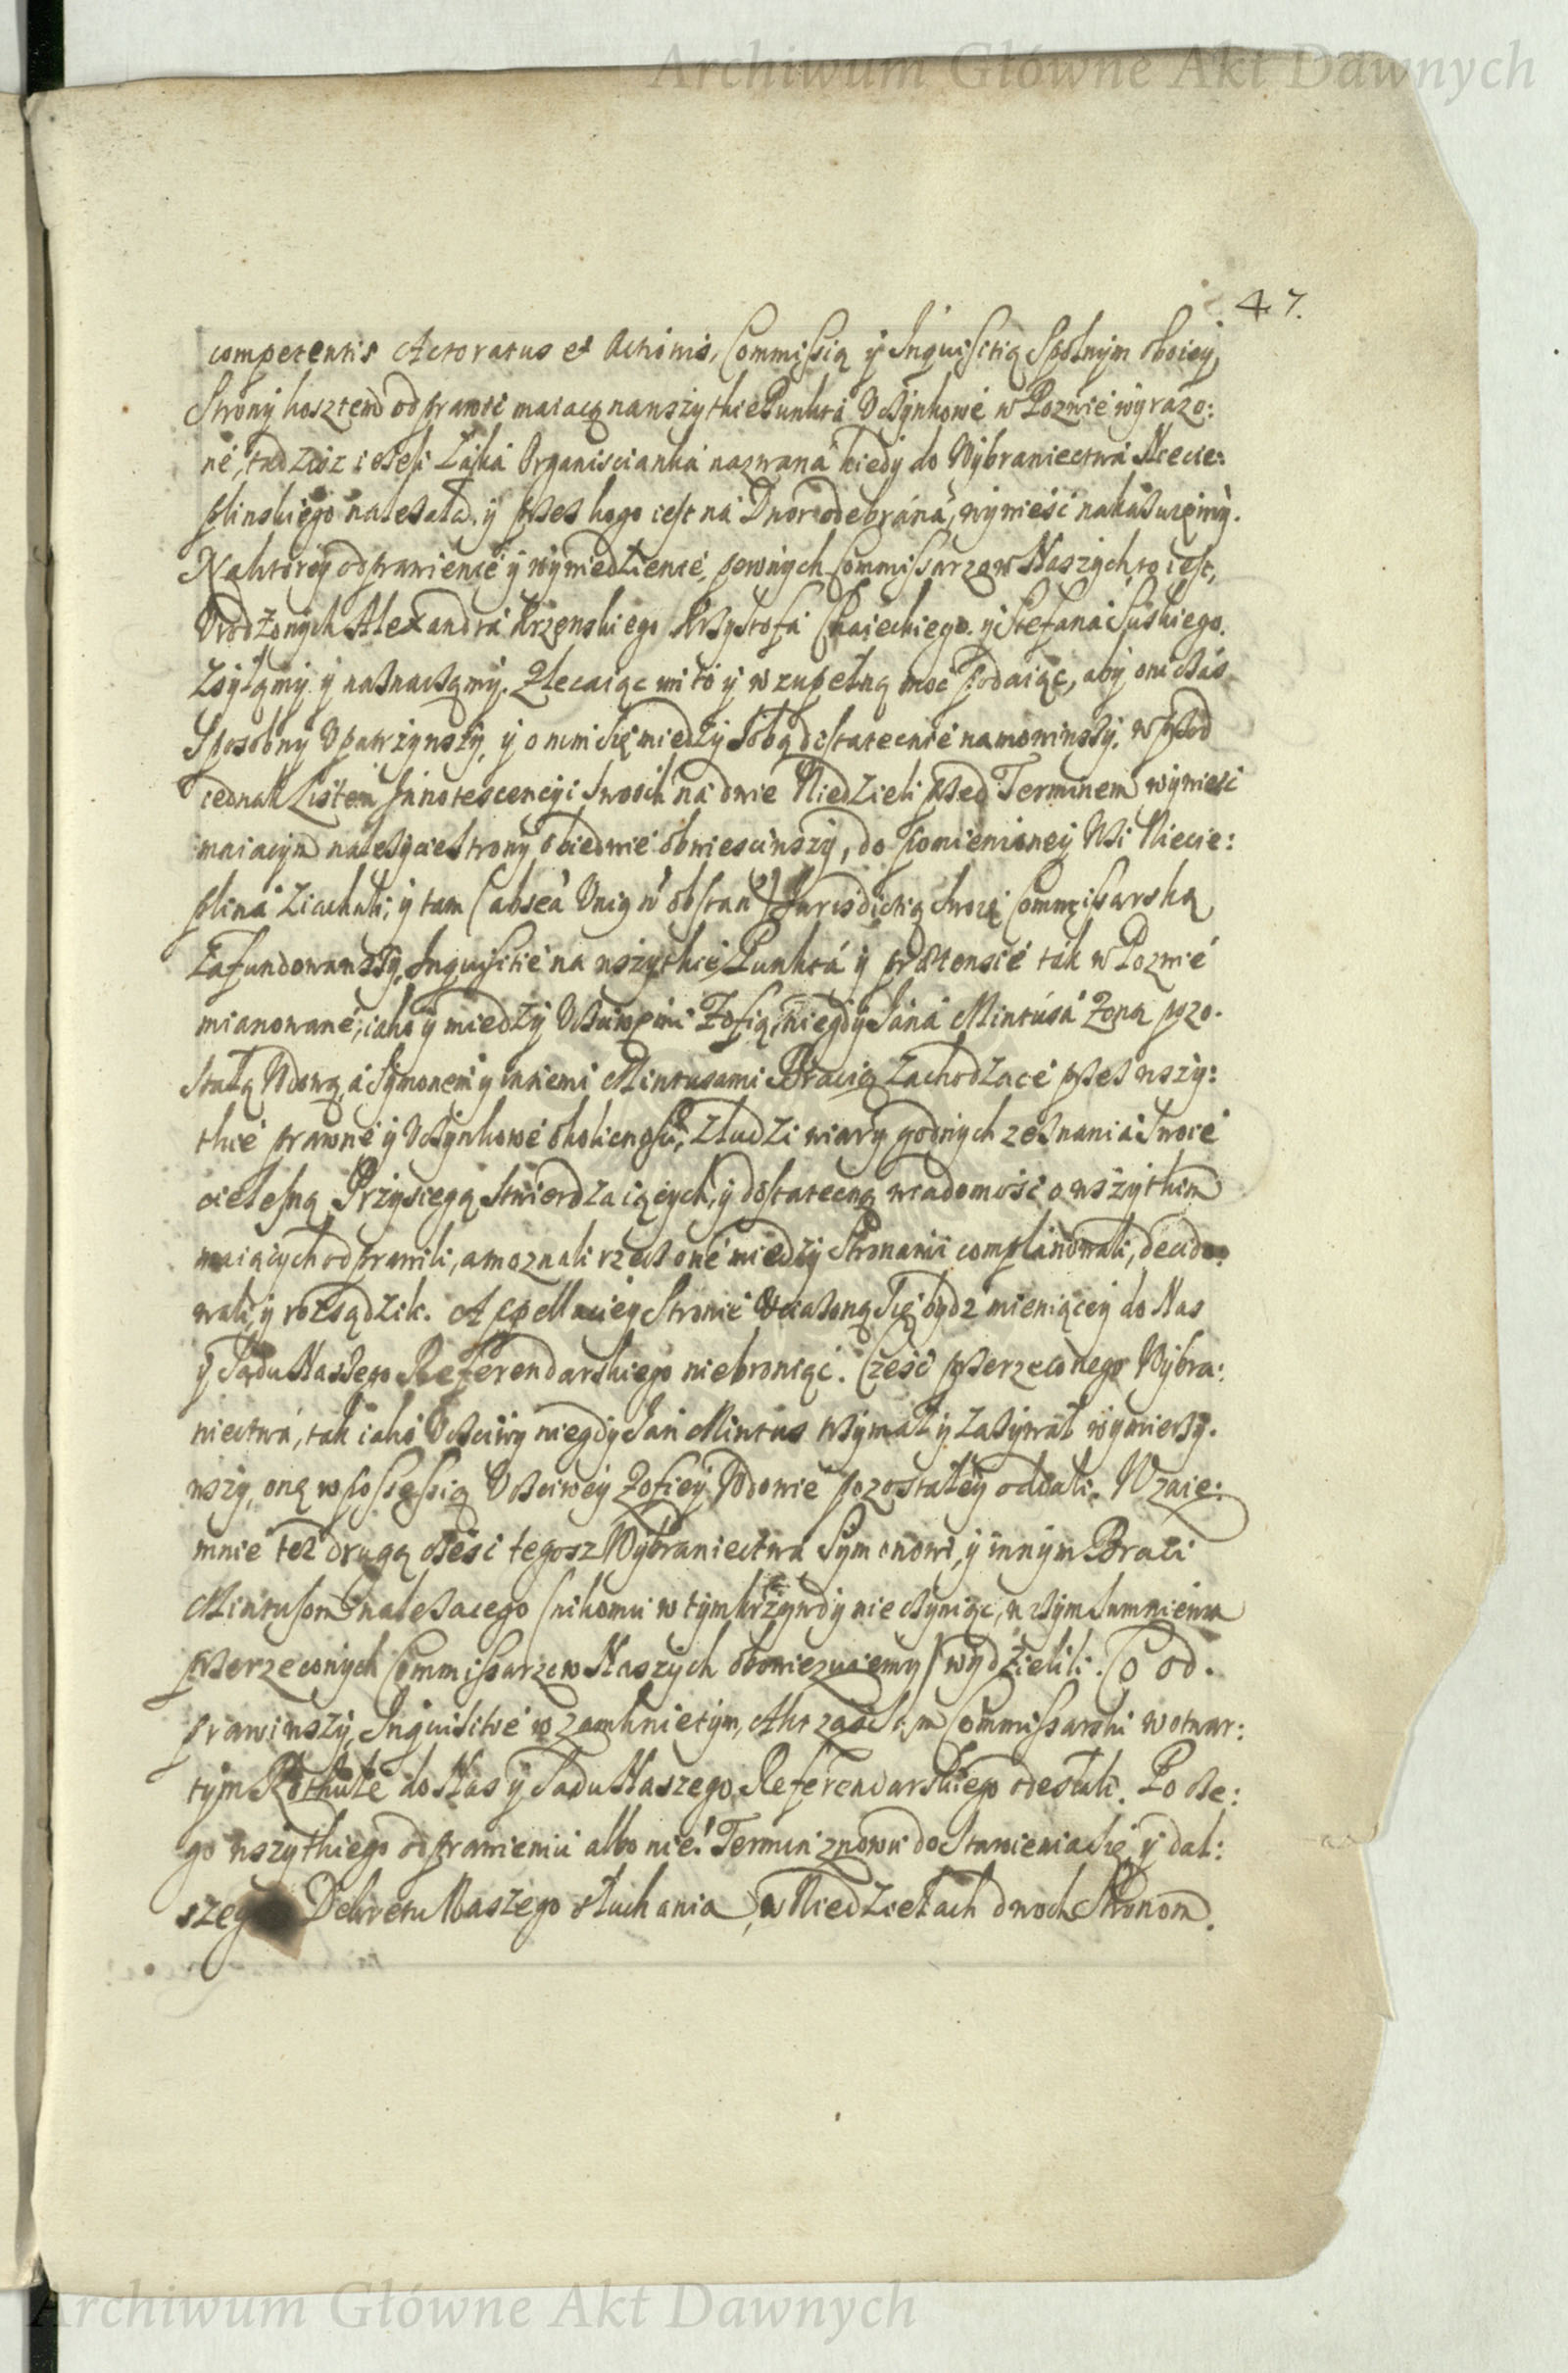 Archiwum Główne Akt Dawnych
47.
competentis Actoratus et Actionis, Commissią y Inquisitią Spolnym oboiey
Strony kosztem odprawić maiącą na wszytkie Punkta Uczynkowe w Pozwie wyrażo:
né, tudziesz iesli Łąka Organiscianka nazwana kiedy do Wybraniectwa Niecie:
plinskiego nalezała, y przez kogo iest na Dwor odebrána, wywieść nakazuiemy.
Na ktorey odprawienié y wywiedzienié, pewnych Commissarzow Naszych to iest,
Urodzonych Alexandrá Krzenskiego Krzysztofá y Stefana Suskiego.
Zsyłamy y naznaczamy. Zlecaiąc im to y w zupełną moc podaiąc, aby oni czas
Sposobny upatrzywszy, y o nim się miedzy sobą dostatecznié namowiwszy, wprzod
iednak Listem Innotescencyi swoich na dwie Niedzieli przed Terminem wyniesć
maiącym należycie Strony obiedwie obwiesciwszy, do pomienioney Wsi Niecie:
pliná ziachali, y tam (absen: unius non obstan:) Jurisdictią swoią Commissarską
Zafundowawszy, Inquisitie na wszytkie Punktá y praetensié ták w Pozwié
mianowané, iako y miedzy Uczciwemi Zofią, niegdy Janá Mintusá Zoną pozo:
stałą Wdową, á Symonem y inszemi Mintusami Bracią zachodzącé przez wszy:
tkié prawné y Uczynkowé okolicznosci, z ludzi wiary godnych zeznania swoié
cielesną Przysięgą stwierdzaiących, y dostateczną wiadomość o wszytkim
maiących odprawili, a moznali rzecz oné miedzy Stronami complanowali, decido:
wali, y rozsądzili. Appellaciey Stronié Uciążoną się bydz mieniącey do Nas
y Sądu Naszego Referendarskiego niebroniąc. Część przerzeczonego Wybra:
niectwá, tak iako Uczciwy niegdy Jan Mintus trzymał y zazywał wymierzy:
wszy, oną w possessią Uczciwey Zofiey Wdowie pozostałey oddali. Wzaie:
mnie też drugą część tegosz Wybraniectwa Symonowi, y innym Braci
Mintusom nalezącego (nikomu w tym krzywdy nie czyniąc, w czym sumnienia
przerzeczonych Commissarzow Naszych obowiezuiemy) wydzielili. Co od:
prawiwszy, Inquisitie w zamknietym, Akt zaś sam Commissarski w otwar:
tym Rotule do Nas y Sądu Naszego Referendarskiego odesłali. Po cze:
go wszytkiego odprawieniu albo nie: Termin znowu do Stawienia się, y dal:
szego Dekretu Naszego słuchania, w Niedzielach dwoch Stronom.
Archiwum Główne Akt Dawnych